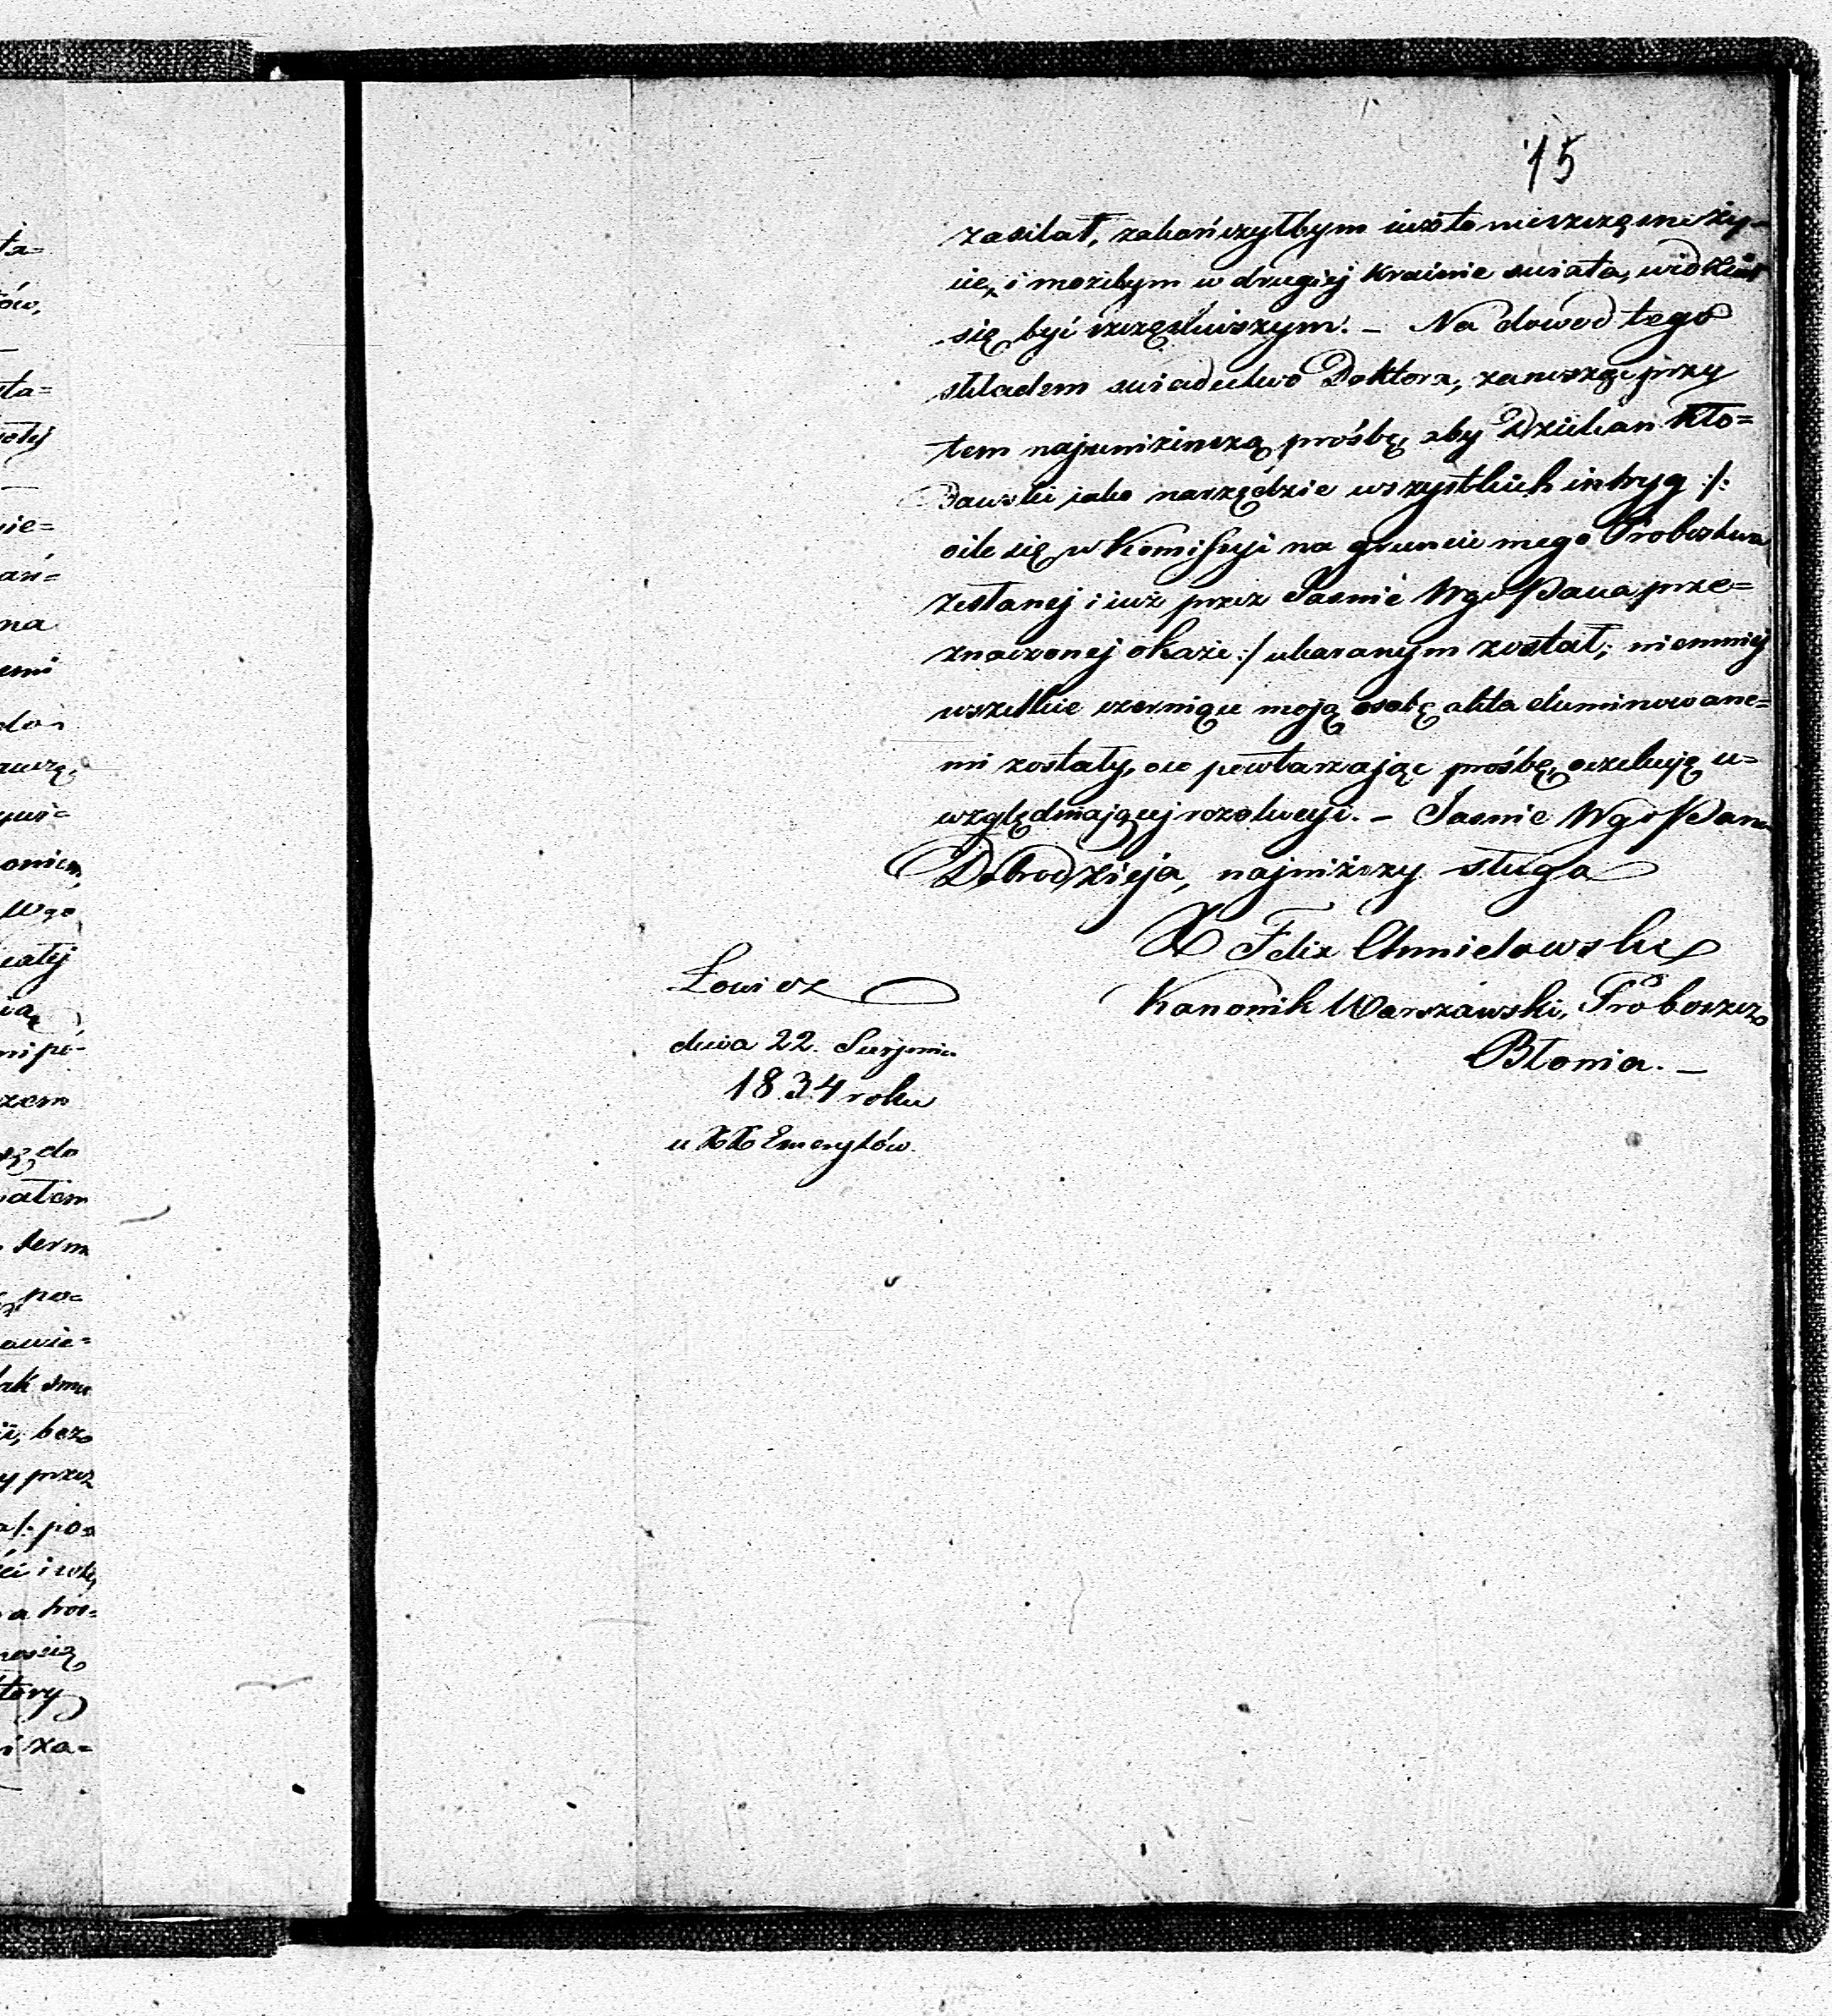 15
zasilał, zakończyłbym iuż to nieszczęsne ży-
cie, i możebym w drugiéj krainie swiata, widział
się być szczęsliwszym. – Na dowod tego
składem swiadectwo Doktora, zanosząc przy
tem najunizenszą prośbę, aby Dziekan Kło=
dawski iako narzędzie wszystkich intryg /:
oile się w Komissyi na gruncie mego Probostwa
zesłanej i iuż przez Jasnie Wgo Pana prze=
znaczonej okaże :/ ukaranym został; niemniej
wszelkie czerniące moją osobę akta eluminowane=
mi zostały, oco powtarzając prośbę, oczekuję u=
względniającej rezolucyi. – Jasnie Wgo Pana
Dobrodzieja, najniższy sługa
X Felix Chmielowski
Kanonik Warszawski, Proboszcz
Błonia. –
Łowicz
dnia 22. Sierpnia
1834 roku
u XX Emerytów.
ta=
ów,
sta=
ie=
ań=
na
emi
Wgo
zem
po=
awie=
bez
przez
po=
tory
za=